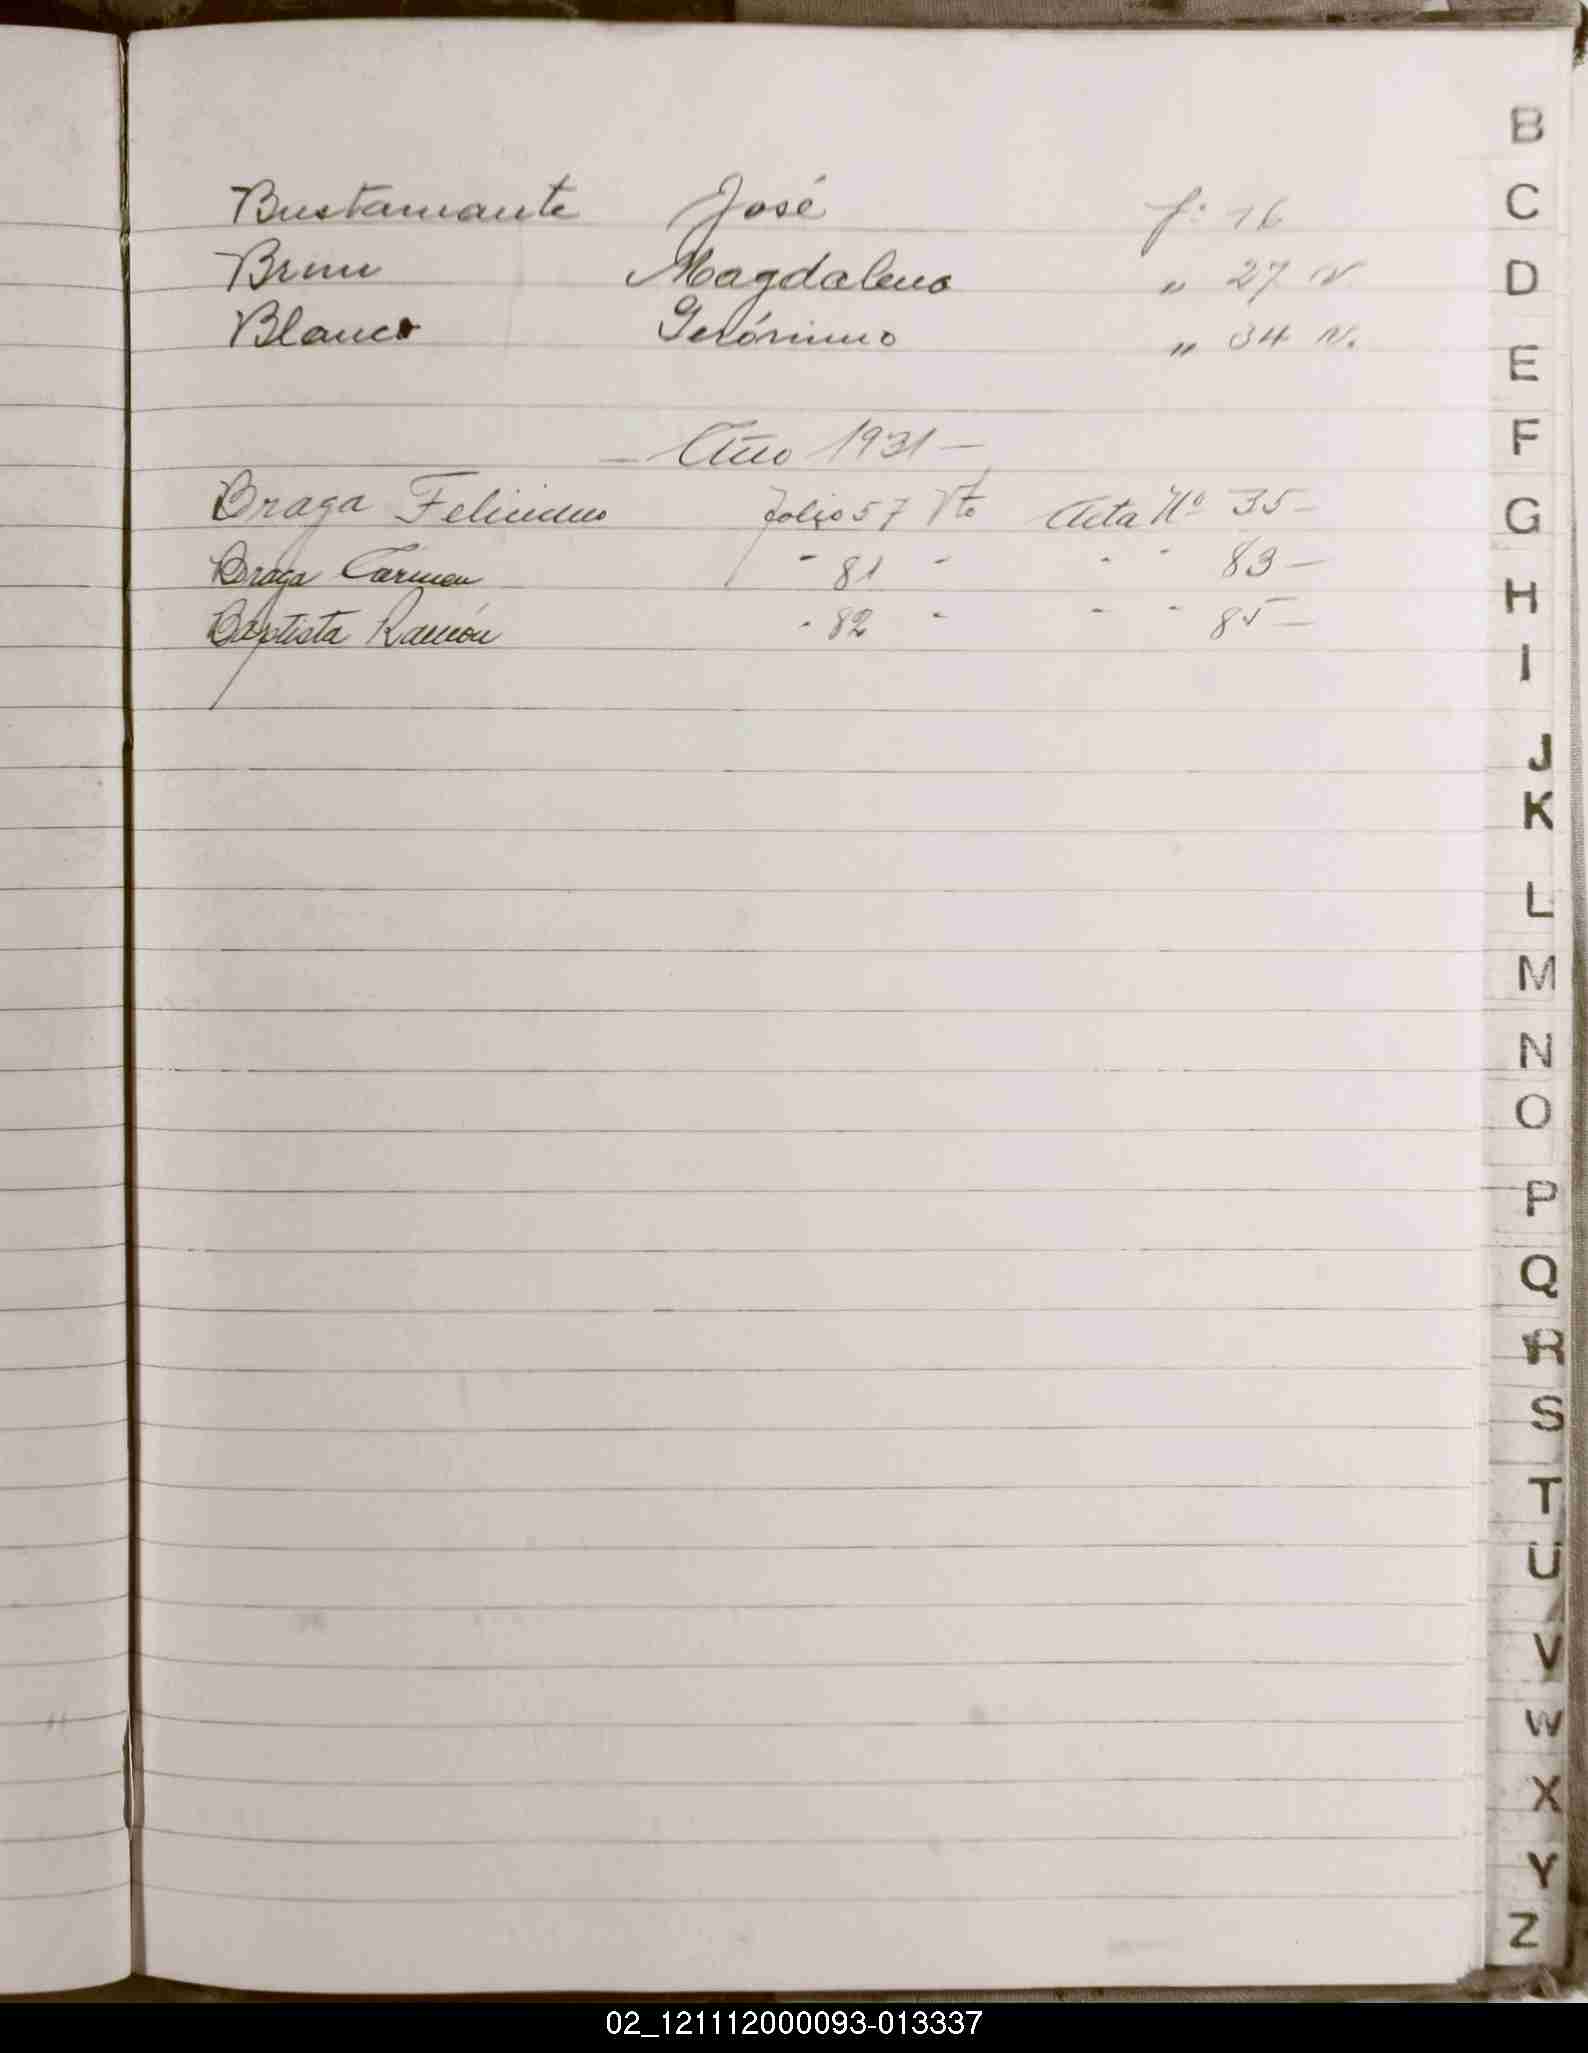 Bustamante José f: 16
Brun Magdalena " 27 v.
Blanco Gerónimo " 34 v.
- Año 1931 -
Braga Folio 57 Vto Acta Nº 35 -
Braga Carmen " 81 " " " 83 -
Baptista Ramón " 82 " " " 85 -
B
C
D
E
F
G
H
I
J
K
L
M
N
O
P
Q
R
S
T
U
V
W
X
Y
Z
02_121112000093-013337